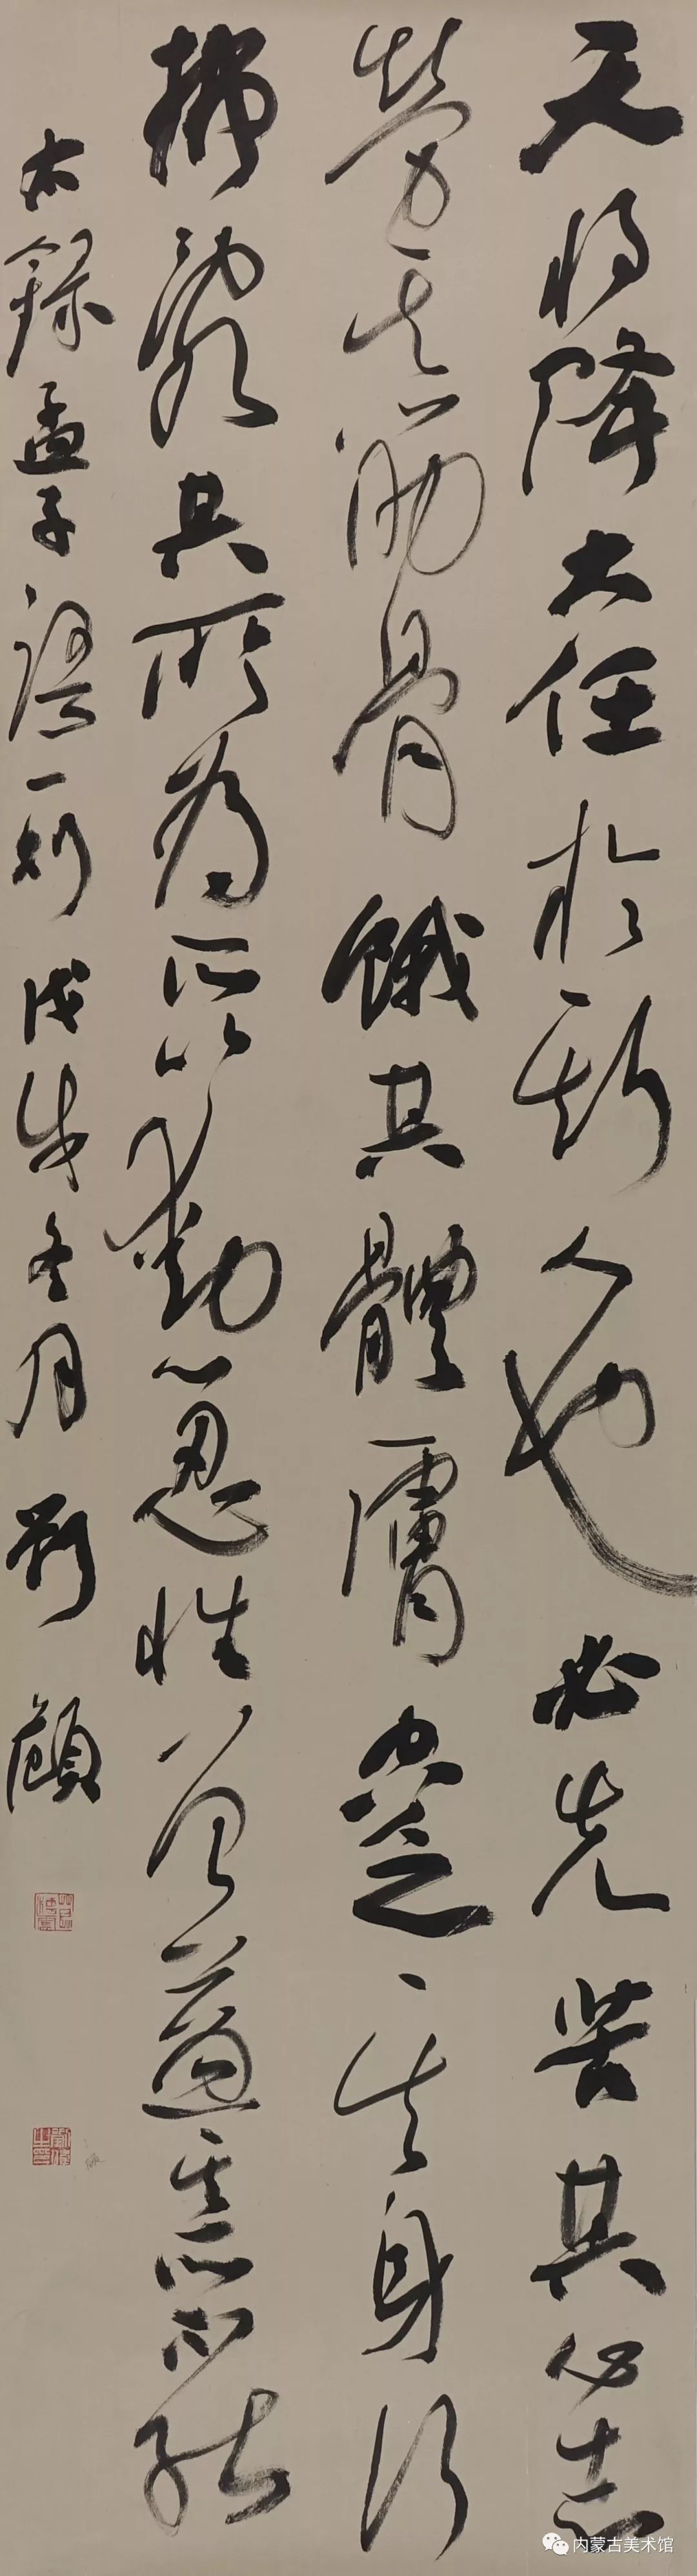 天將降大任於斯人也必先苦其心志
勞其筋骨餓其體膚空乏其身行
拂亂其所為所以動心忍性曾益其所不能
右錄孟子語一則戊戌冬月劉顧
内蒙古美术馆